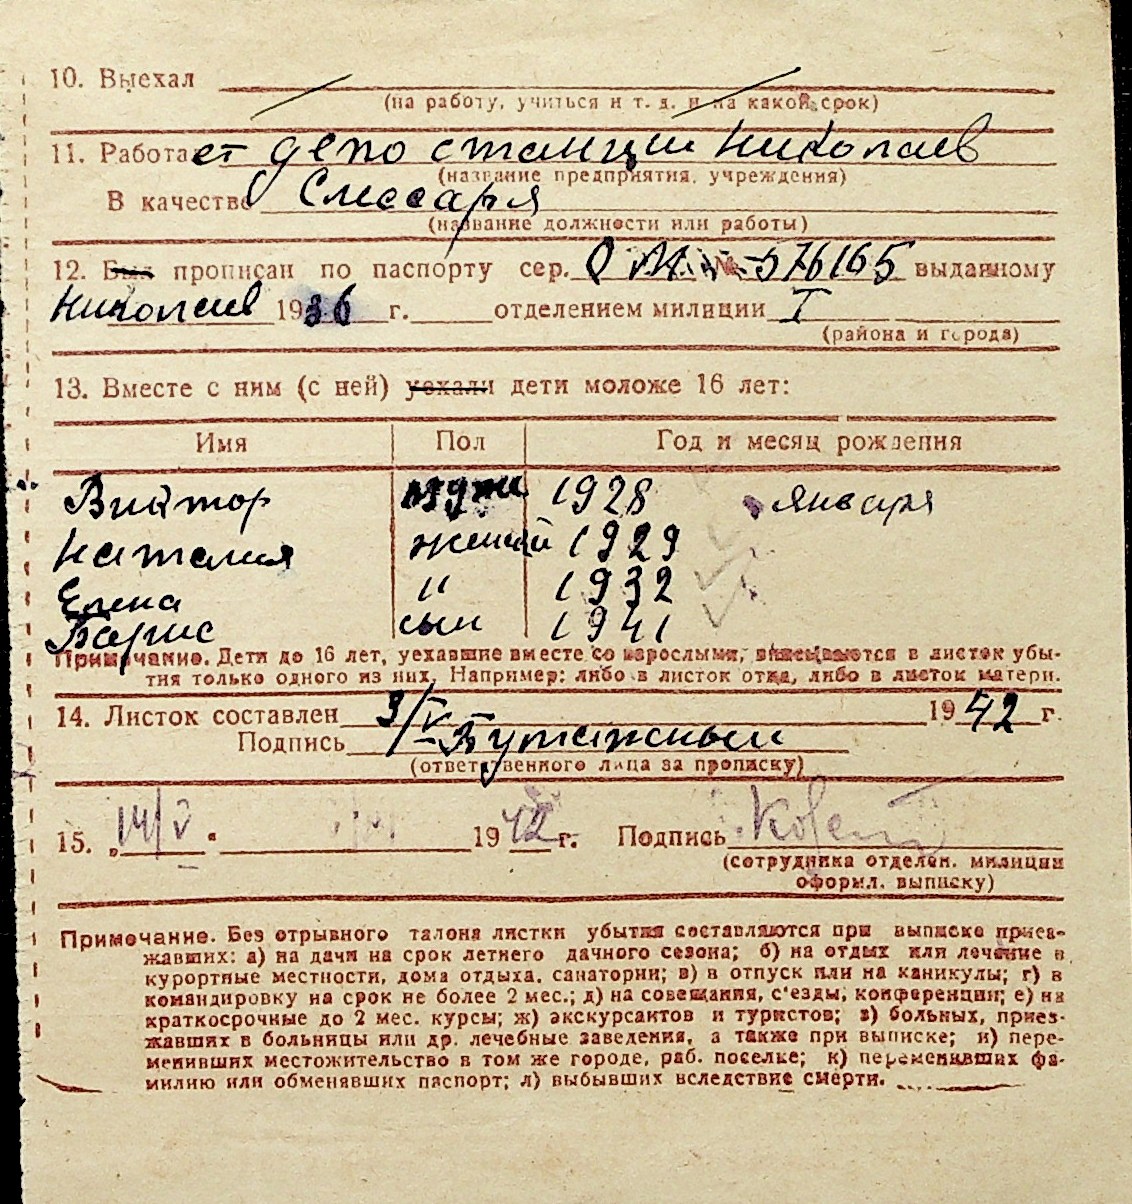 10. Выехал
(на работу, учиться и т. д. и на какой срок)
11. Работает депо станции Николаев
(название предприятия, учреждения)
В качестве Слесаря
(название должности или работы)
12. Был прописан по паспорту сер. О М № 576165 выданному
Николаев 1936 г. отделением милиции I
(района и города)
13. Вместе с ним (с ней) уехали дети моложе 16 лет:
Имя Пол Год и месяц рождения
Виктор мужи 1928 января
Наталия женский 1929
Елена " 1932
Барис сын 1941
Примечание. Дети до 16 лет, уехавшие вместе со взрослыми, вписываются в листок убы-
тия только одного из них. Например: либо в листок отца, либо в листок матери.
14. Листок составлен 3/V 1942 г.
Подпись
(ответственного лица за прописку)
15. „14/V" 1942 г. Подпись
(сотрудника отделен. милиции
оформл. выписку)
Примечание. Без отрывного талона листки убытия составляются при выписке приез-
жавших: а) на дачи на срок летнего дачного сезона; б) на отдых или лечение в
курортные местности, дома отдыха, санатории; в) в отпуск или на каникулы; г) в
командировку на срок не более 2 мес.; д) на совещания, с'езды, конференции; е) на
краткосрочные до 2 мес. курсы; ж) экскурсантов и туристов; з) больных, приез-
жавших в больницы или др. лечебные заведения, а также при выписке; и) пере-
менивших местожительство в том же городе, раб. поселке; к) переменивших фа-
милию или обменявших паспорт; л) выбывших вследствие смерти.